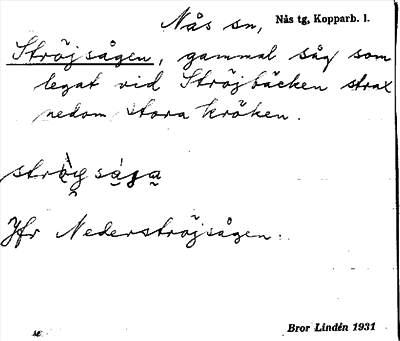 Nås sn, Nås tg, Kopparb. l.
Ströjsågen, gammal såg som
legat vid Ströjbäcken strax
nedom stora kröken.
Jfr Nederströjsågen.
Bror Lindén 1931